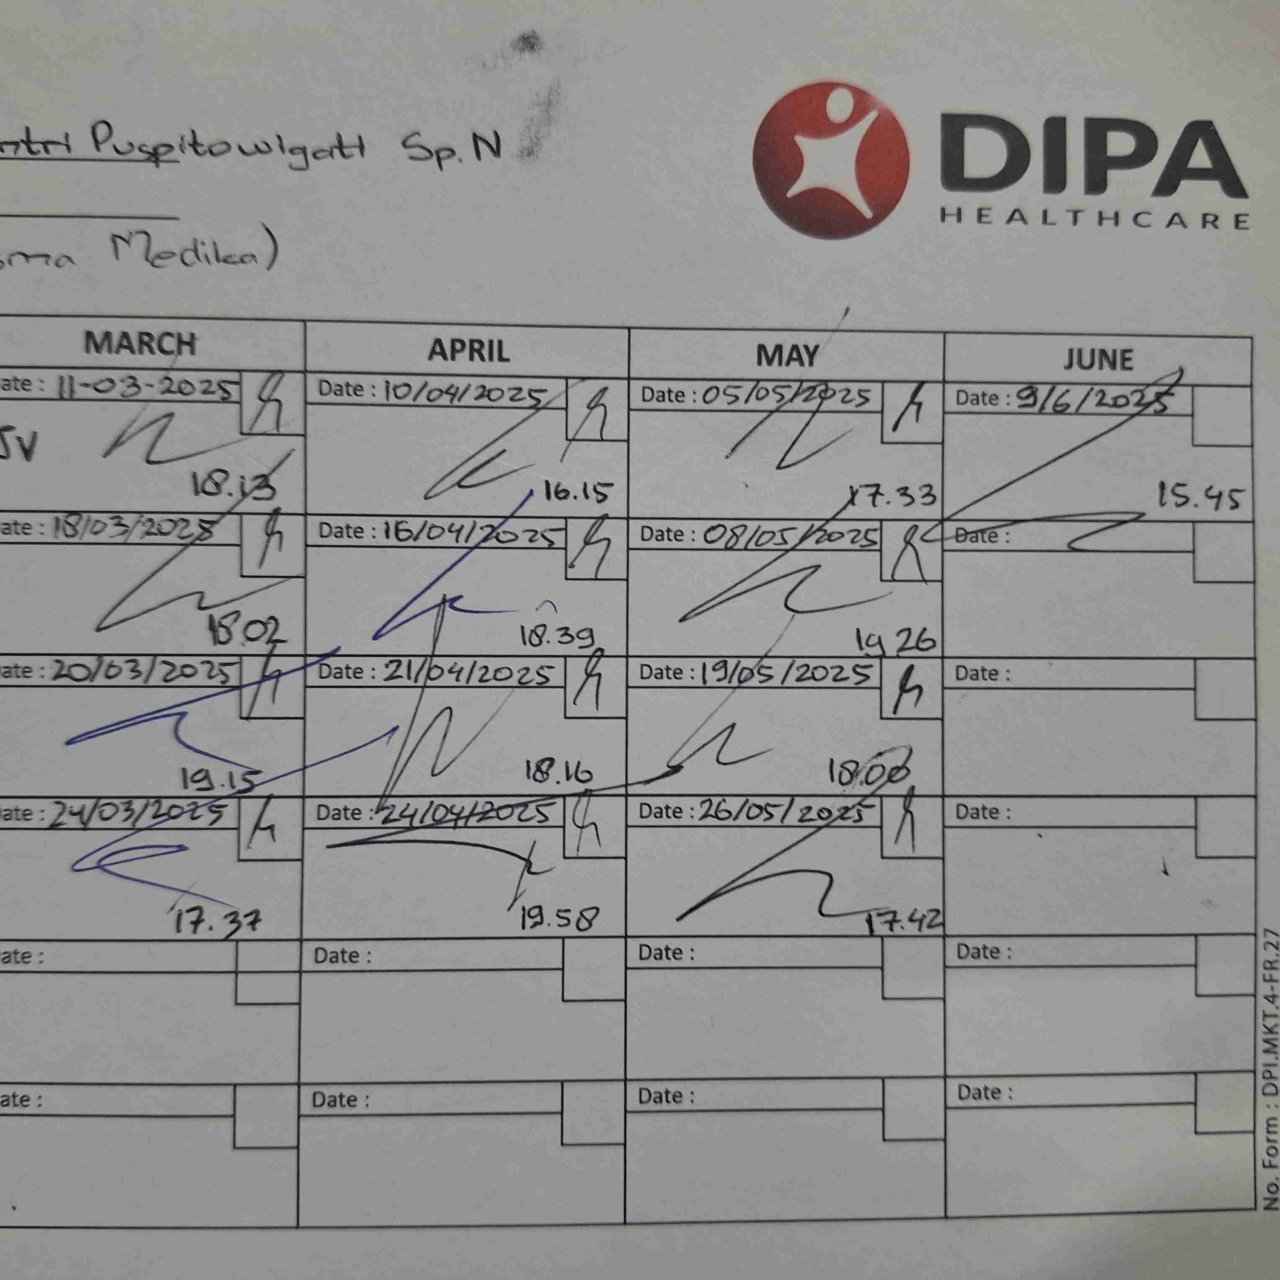 Puspitowigati Sp.N
DIPA
HEALTHCARE
Medika)
MARCH APRIL MAY JUNE
ate : 11-03-2025 Date : 10/04/2025 Date : 05/05/2025 Date : 9/6/2025
JV
18.13 16.15 17.33 15.45
ate : 18/03/2025 Date : 16/04/2025 Date : 08/05/2025 Date :
18.02 18.39 19 26
ate : 20/03/2025 Date : 21/04/2025 Date : 19/05/2025 Date :
19.15 18.16 18.00
ate : 24/03/2025 Date : 24/04/2025 Date : 26/05/2025 Date :
17.37 19.58 17.42
ate : Date : Date : Date :
ate : Date : Date : Date :
No. Form : DPI.MKT.4-FR.27